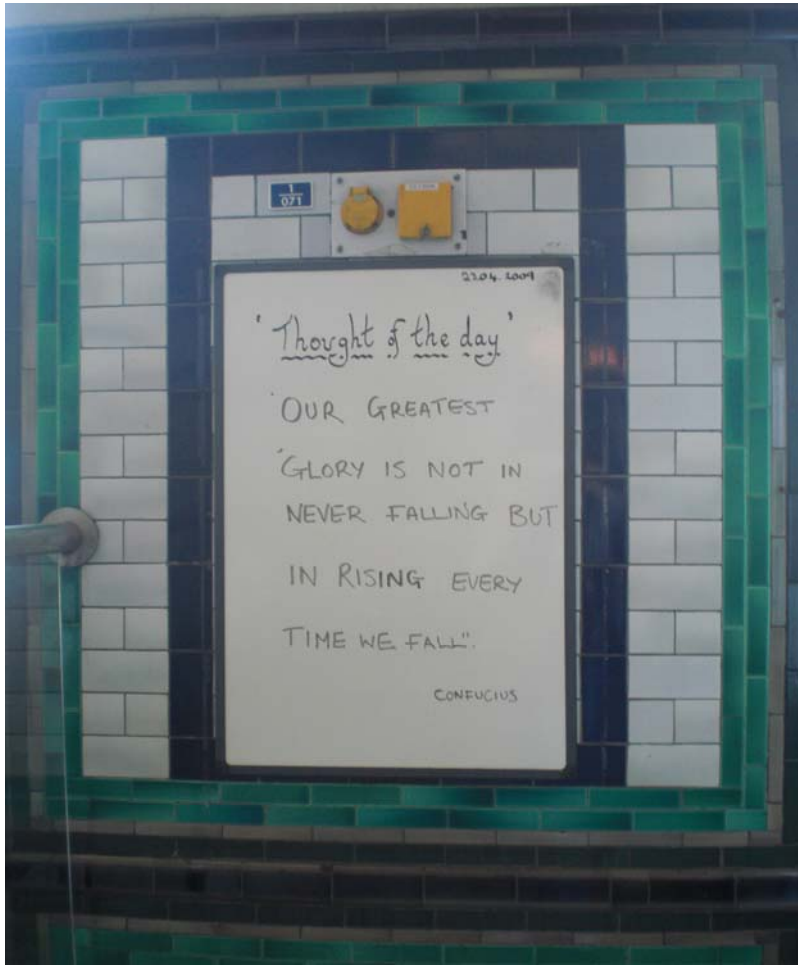 1
071
22.04.2009
'Thought of the day'
"OUR GREATEST
"GLORY IS NOT IN
NEVER FALLING BUT
IN RISING EVERY
TIME WE FALL".
CONFUCIUS